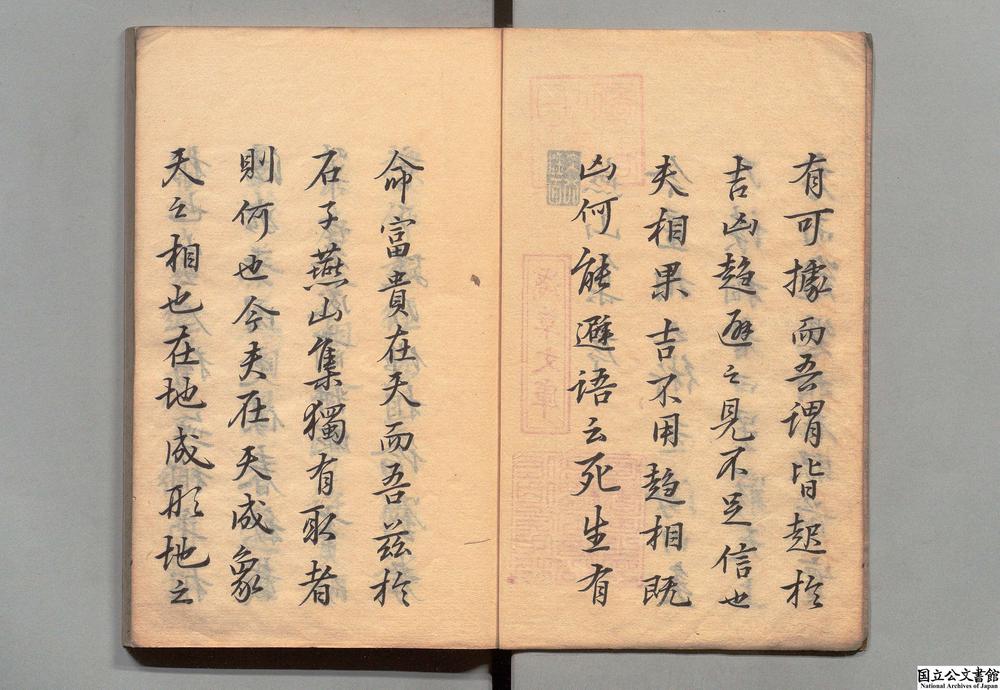 有可據而吾謂皆起於
吉凶趨避之見不足信也
夫相果吉不用趨相既
凶何能避語云死生有
命富貴在天而吾茲於
石子燕山集獨有取者
則何也今夫在天成象
天之相也在地成形地之
淺草文庫
国立公文書館
National Archives of Japan